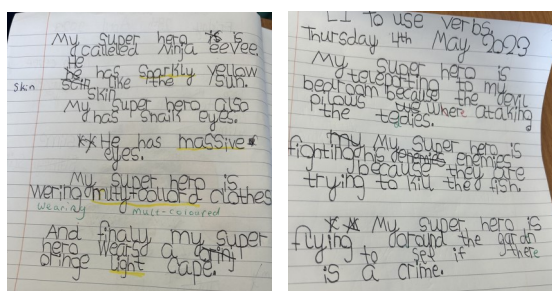 My super hero is
calleled Ninja eevee
He
he has sparkly yellow
skin like the sun.
skin
Skin
My super hero also
has snail eyes.
He has massive
eyes.
My super hero is
wering multy-colord clothes
wearing mult-coloured
And finaly my super
hero wears a
oringe light cape.
LI to use verbs.
Thursday 4th May 2023
My super hero is
teleporting to my
bedroom because the evil
pilows we where ataking
the tedies.
my My super hero is
fighting his enemies enemies
because they are
trying to kill the fish.
My super hero is
flying around the gardn
to see if there
is a crime.